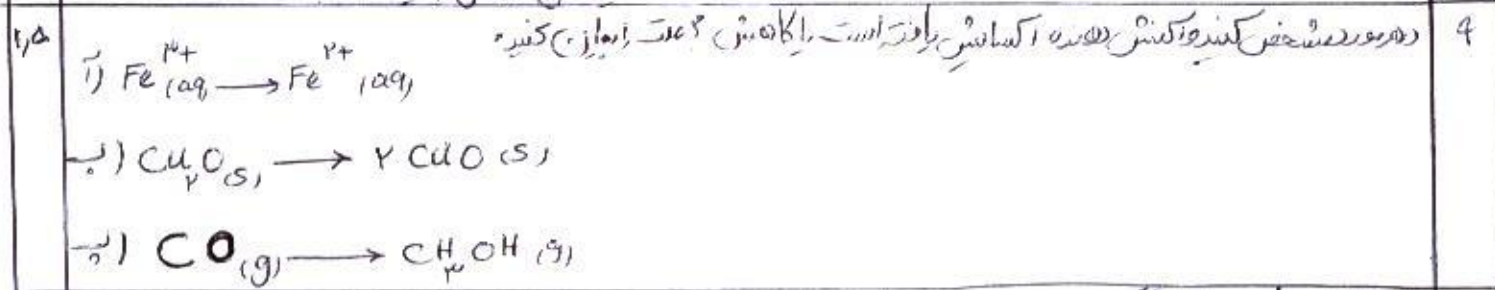 ۹ در هر مورد مشخص کنید واکنش دهنده اکسایش یافته است یا کاهش؟ علت را بنویسید. ۱,۵
آ) Fe³⁺(aq) → Fe²⁺(aq)
ب) Cu₂O(s) → ۲ CuO(s)
پ) CO(g) → CH₃OH(g)